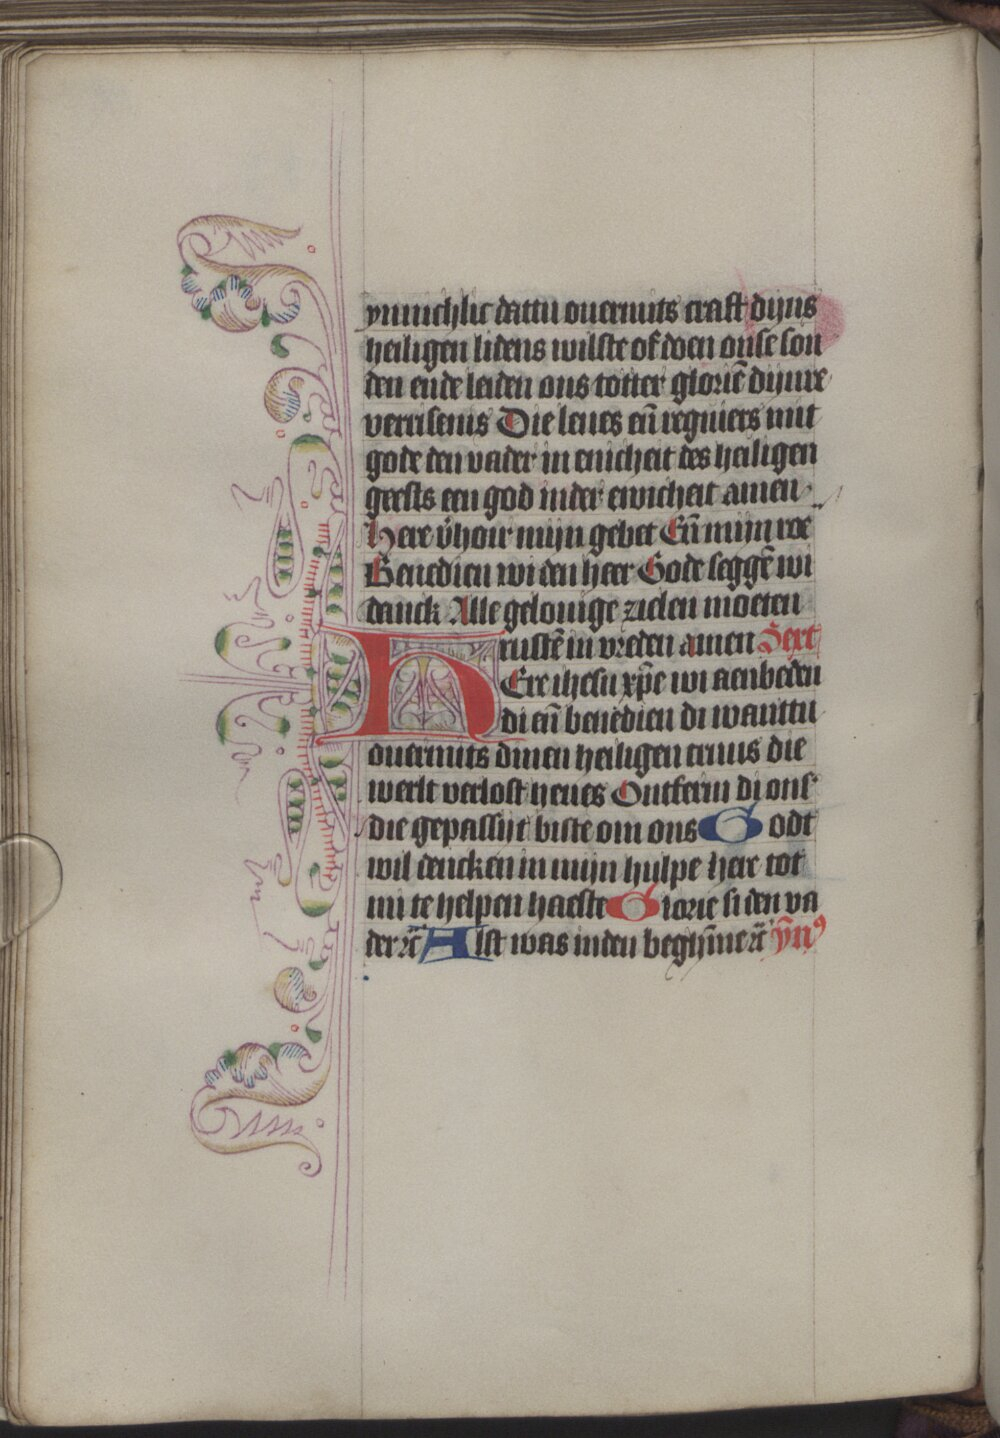 ynnichlic dattu ouermits craft dijns
heiligen lidens wilste of doen onse son
den ende leiden ons totter gloriē dijnre
verrisenis Die leues eñ regniers mit
gode den vader in enicheit des heiligen
geests een god inder ewicheit amen
Here v̄hoir mijn gebet Eñ mijn roe
Benedien wi den heer Gode seggē wi
danck Alle gelouige zielen moeten
rustē in vreden amen Sext
HEre ihesu xpē wi aenbeden
di eñ benedien di wanttu
ouermits dinen heiligen cruus die
werlt verlost heues Ontferm di ons
die gepassijt biste om ons Godt
wil dencken in mijn hulpe here tot
mi te helpen haeste Glorie si den va
der ⁊c̄ Alst was inden beghīne ⁊c̄ ȳn⁹